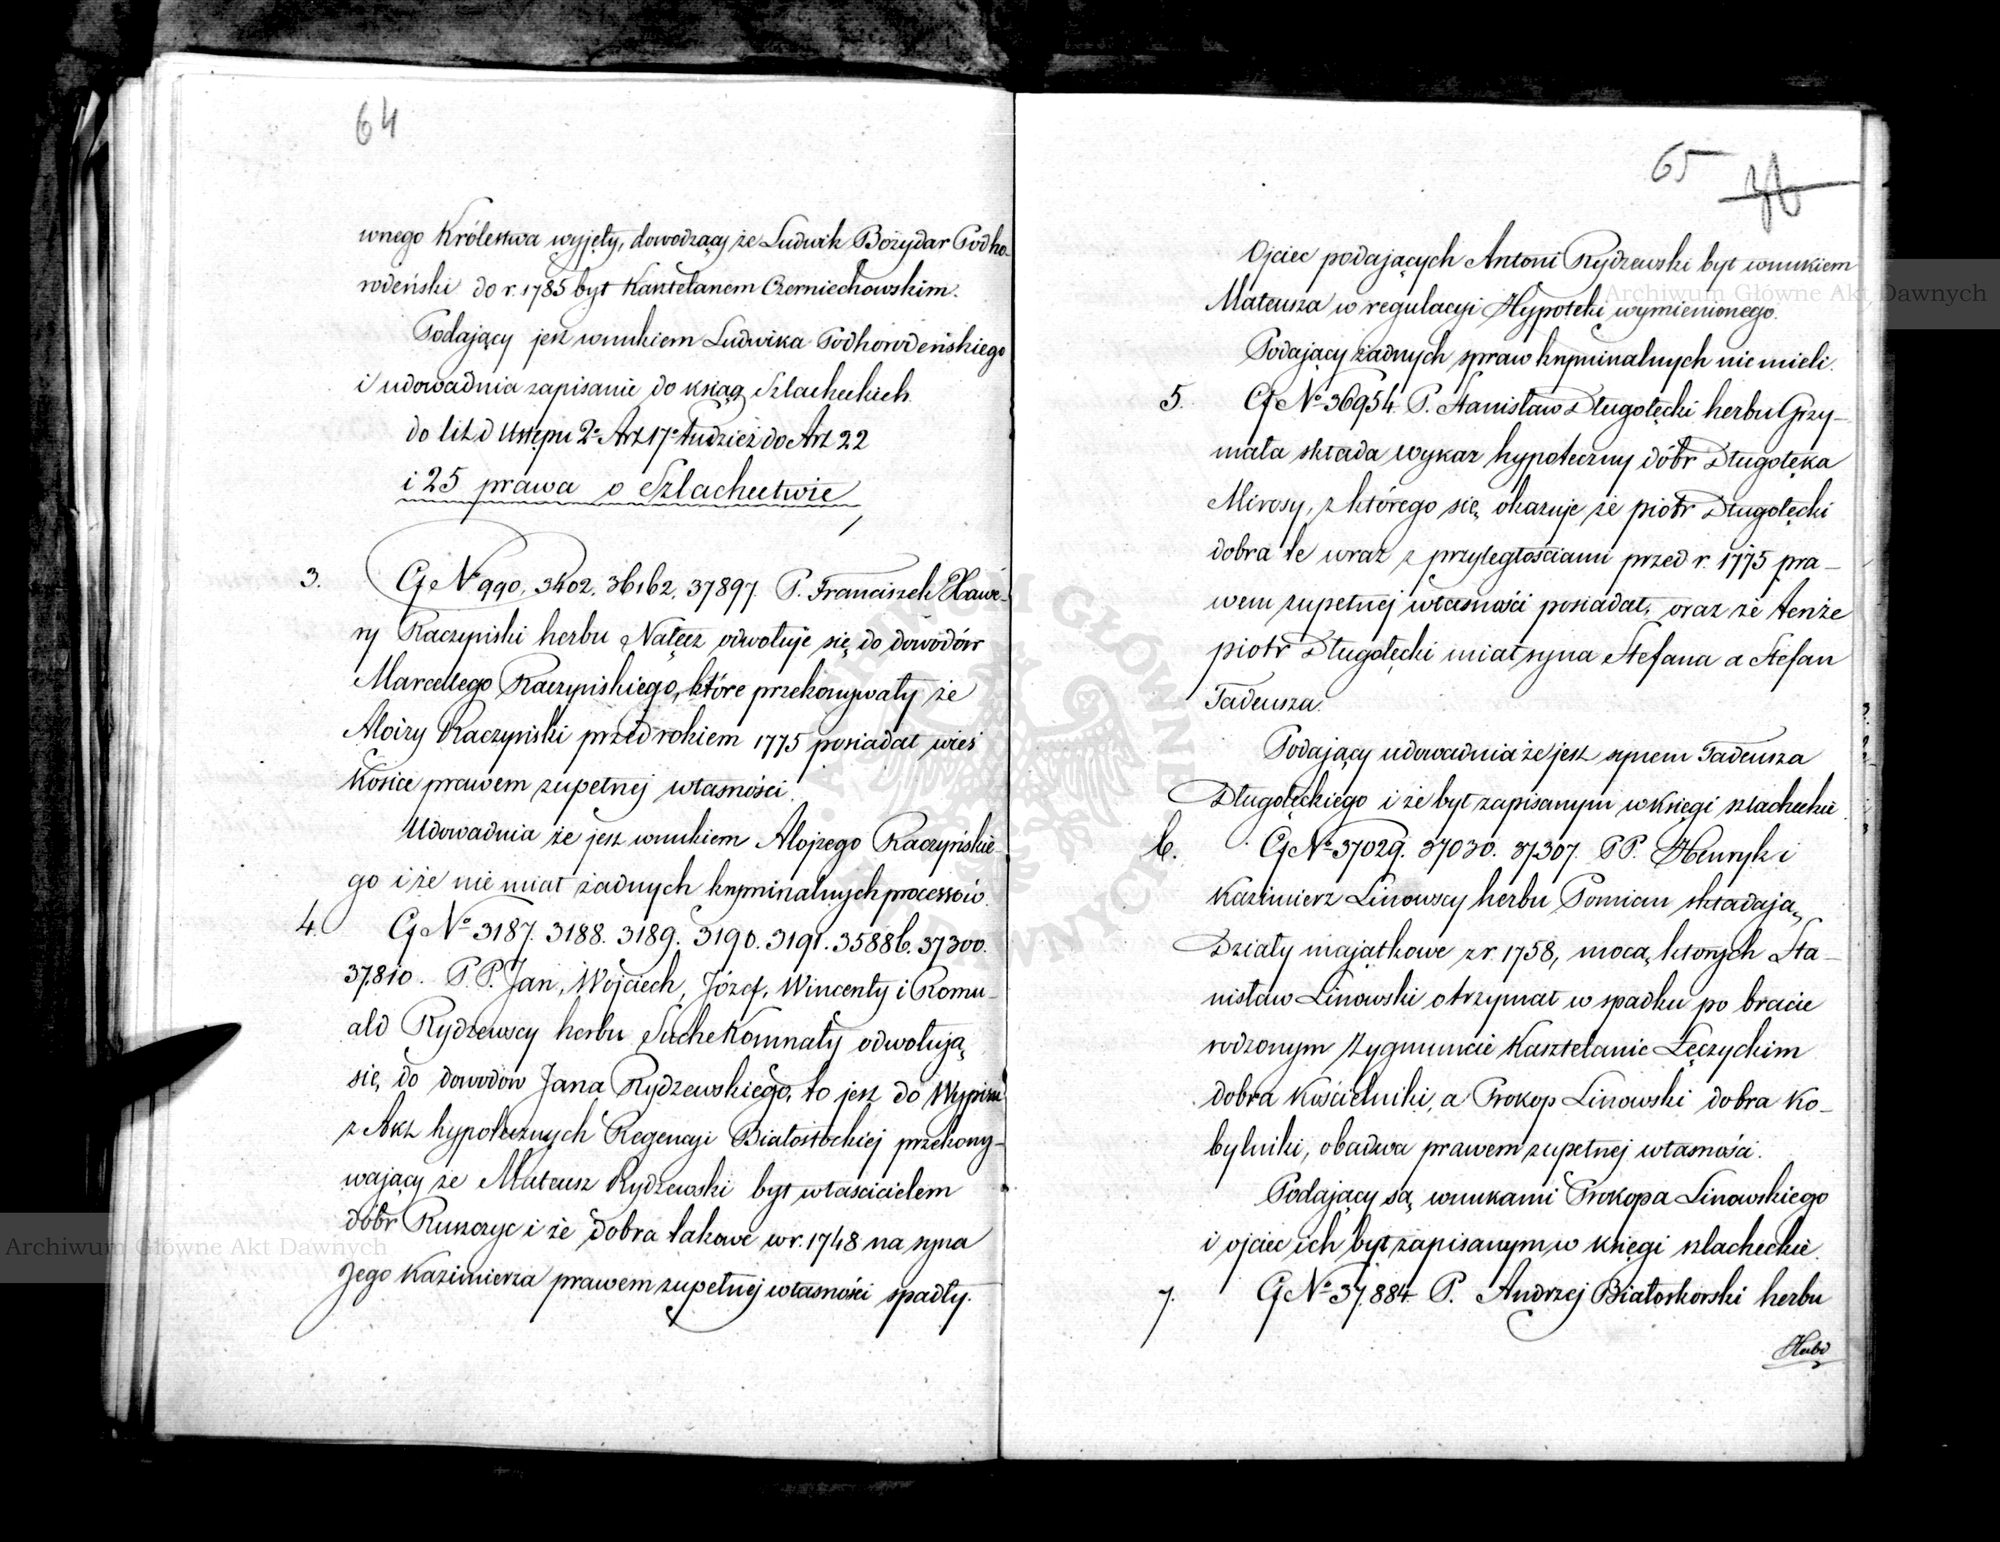 64
wnego Królestwa wyjęty, dowodzący że Ludwik Bożydar Podho-
rodeński do r. 1785 był Kasztelanem Czerniechowskim.
Podający jest wnukiem Ludwika Podhorodeńskiego
i udowadnia zapisanie do ksiąg Szlacheckich.
do lit d Ustępu 2º Art 17º tudzież do Art 22
i 25 prawa o Szlachectwie
3. G Nº 990, 3402, 36162, 37897. P. Franciszek Xawe-
ry Raczyński herbu Nałęcz odwołuje się do dowodów
Marcellego Raczyńskiego, które przekonywały że
Aloizy Raczyński przed rokiem 1775 posiadał wieś
Kosice prawem zupełnej własności.
Udowadnia że jest wnukiem Alojzego Raczyńskie-
go i że nie miał żadnych kryminalnych processów.
4. G Nº 3187. 3188. 3189. 3190. 3191. 35886. 37300.
37810. P.P. Jan, Wojciech, Józef, Wincenty i Romu-
ald Rydzewscy herbu Suche Komnaty odwołują
się do dowodów Jana Rydzewskiego, to jest do Wypisu
z Akt hypotecznych Regencyi Białostockiej przekony-
wający że Mateusz Rydzewski był właścicielem
dóbr Ruszczyc i że dobra takowe w r. 1748 na syna
Jego Kazimierza prawem zupełnej własności spadły.
65
Ojciec podających Antoni Rydzewski był wnukiem
Mateusza w regulacyi Hypoteki wymienionego.
Podający żadnych spraw kryminalnych nie mieli.
5. G Nº 36954. P. Stanisław Długołęcki herbu Grzy-
mała składa wykaz hypoteczny dóbr Długołęka
Mirosy, z którego się okazuje że piotr Długołęcki
dobra te wraz z przyległościami przed r. 1775 pra-
wem zupełnej własności posiadał, oraz że tenże
piotr Długołęcki miał syna Stefana a Stefan
Tadeusza.
Podający udowadnia że jest synem Tadeusza
Długołęckiego i że był zapisanym w księgi szlacheckie
6. G Nº 37029. 37030. 37307. PP. Henryk i
Kazimierz Linowscy herbu Pomian składają
Działy majątkowe z r. 1758, mocą których Sta-
nisław Linowski otrzymał w spadku po bracie
rodzonym Zygmuncie Kasztelanie Łęczyckim
dobra Kościelniki, a Prokop Linowski dobra Ko-
bylniki, obadwa prawem zupełnej własności.
Podający są wnukami Prokopa Linowskiego
i ojciec ich był zapisanym w księgi szlacheckie.
7. G Nº 37.884 P. Andrzej Białoskórski herbu
Archiwum Główne Akt Dawnych
Archiwum Główne Akt Dawnych